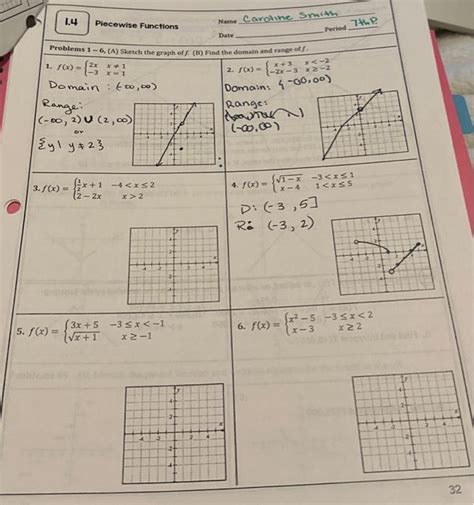 1.4 Piecewise Functions
Name Caroline Smith
Date
Period 7th P.
Problems 1 – 6, (A) Sketch the graph of f. (B) Find the domain and range of f.
1. f(x) = { 2x x ≠ 1
−3 x = 1
Domain : (-∞, ∞)
Range:
(-∞, 2) U (2, ∞)
or
{y | y ≠ 2}
2. f(x) = { x + 3 x < −2
−2x − 3 x ≥ −2
Domain: (-∞, ∞)
Range:
(-∞, ∞)
3. f(x) = { 1/2 x + 1 −4 < x ≤ 2
2 − 2x x > 2
4. f(x) = { √1 − x −3 < x ≤ 1
x − 4 1 < x ≤ 5
D: (-3, 5]
R: (-3, 2)
5. f(x) = { 3x + 5 −3 ≤ x < −1
√x + 1 x ≥ −1
6. f(x) = { x² − 5 −3 ≤ x < 2
x − 3 x ≥ 2
32